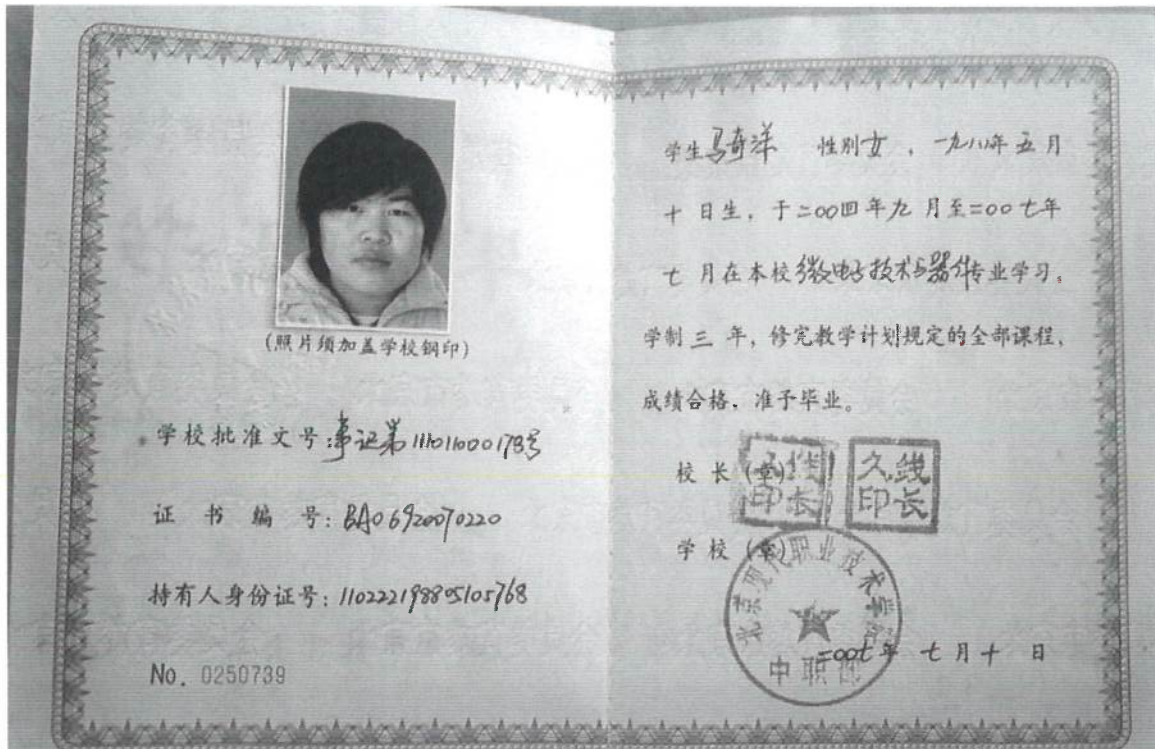 (照片须加盖学校钢印)
学校批准文号:事证第111011000178号
证 书 编 号:BA06920070220
持有人身份证号:110222198805105768
No. 0250739
学生马奇洋 性别女 ,一九八八年五月
十 日生,于二00四年九 月至二00七年
七 月在本校微电子技术与器件专业学习。
学制 三 年,修完教学计划规定的全部课程,
成绩合格,准予毕业。
校 长 (章):
久线
印长
学校 (章)
北京现代职业技术学院
中职部
二00七年 七 月 十 日